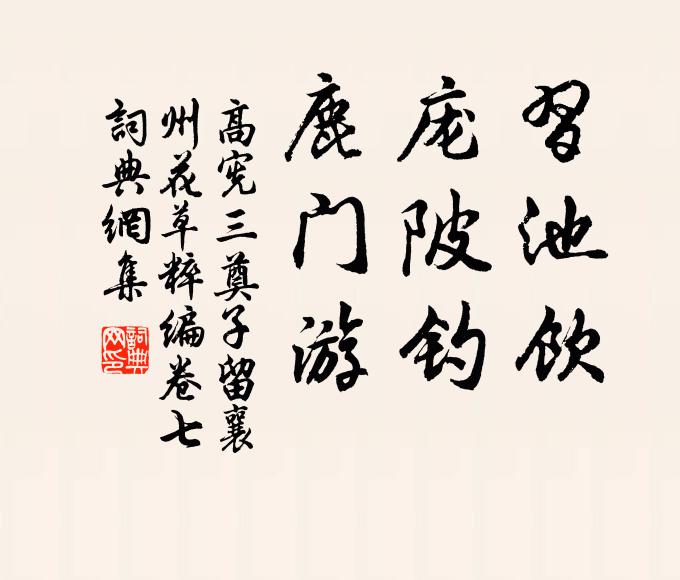 習池飲
庞陂钓
鹿门游
高宪三奠子留襄
州花草粹编卷七
詞典網集
詞典
网印